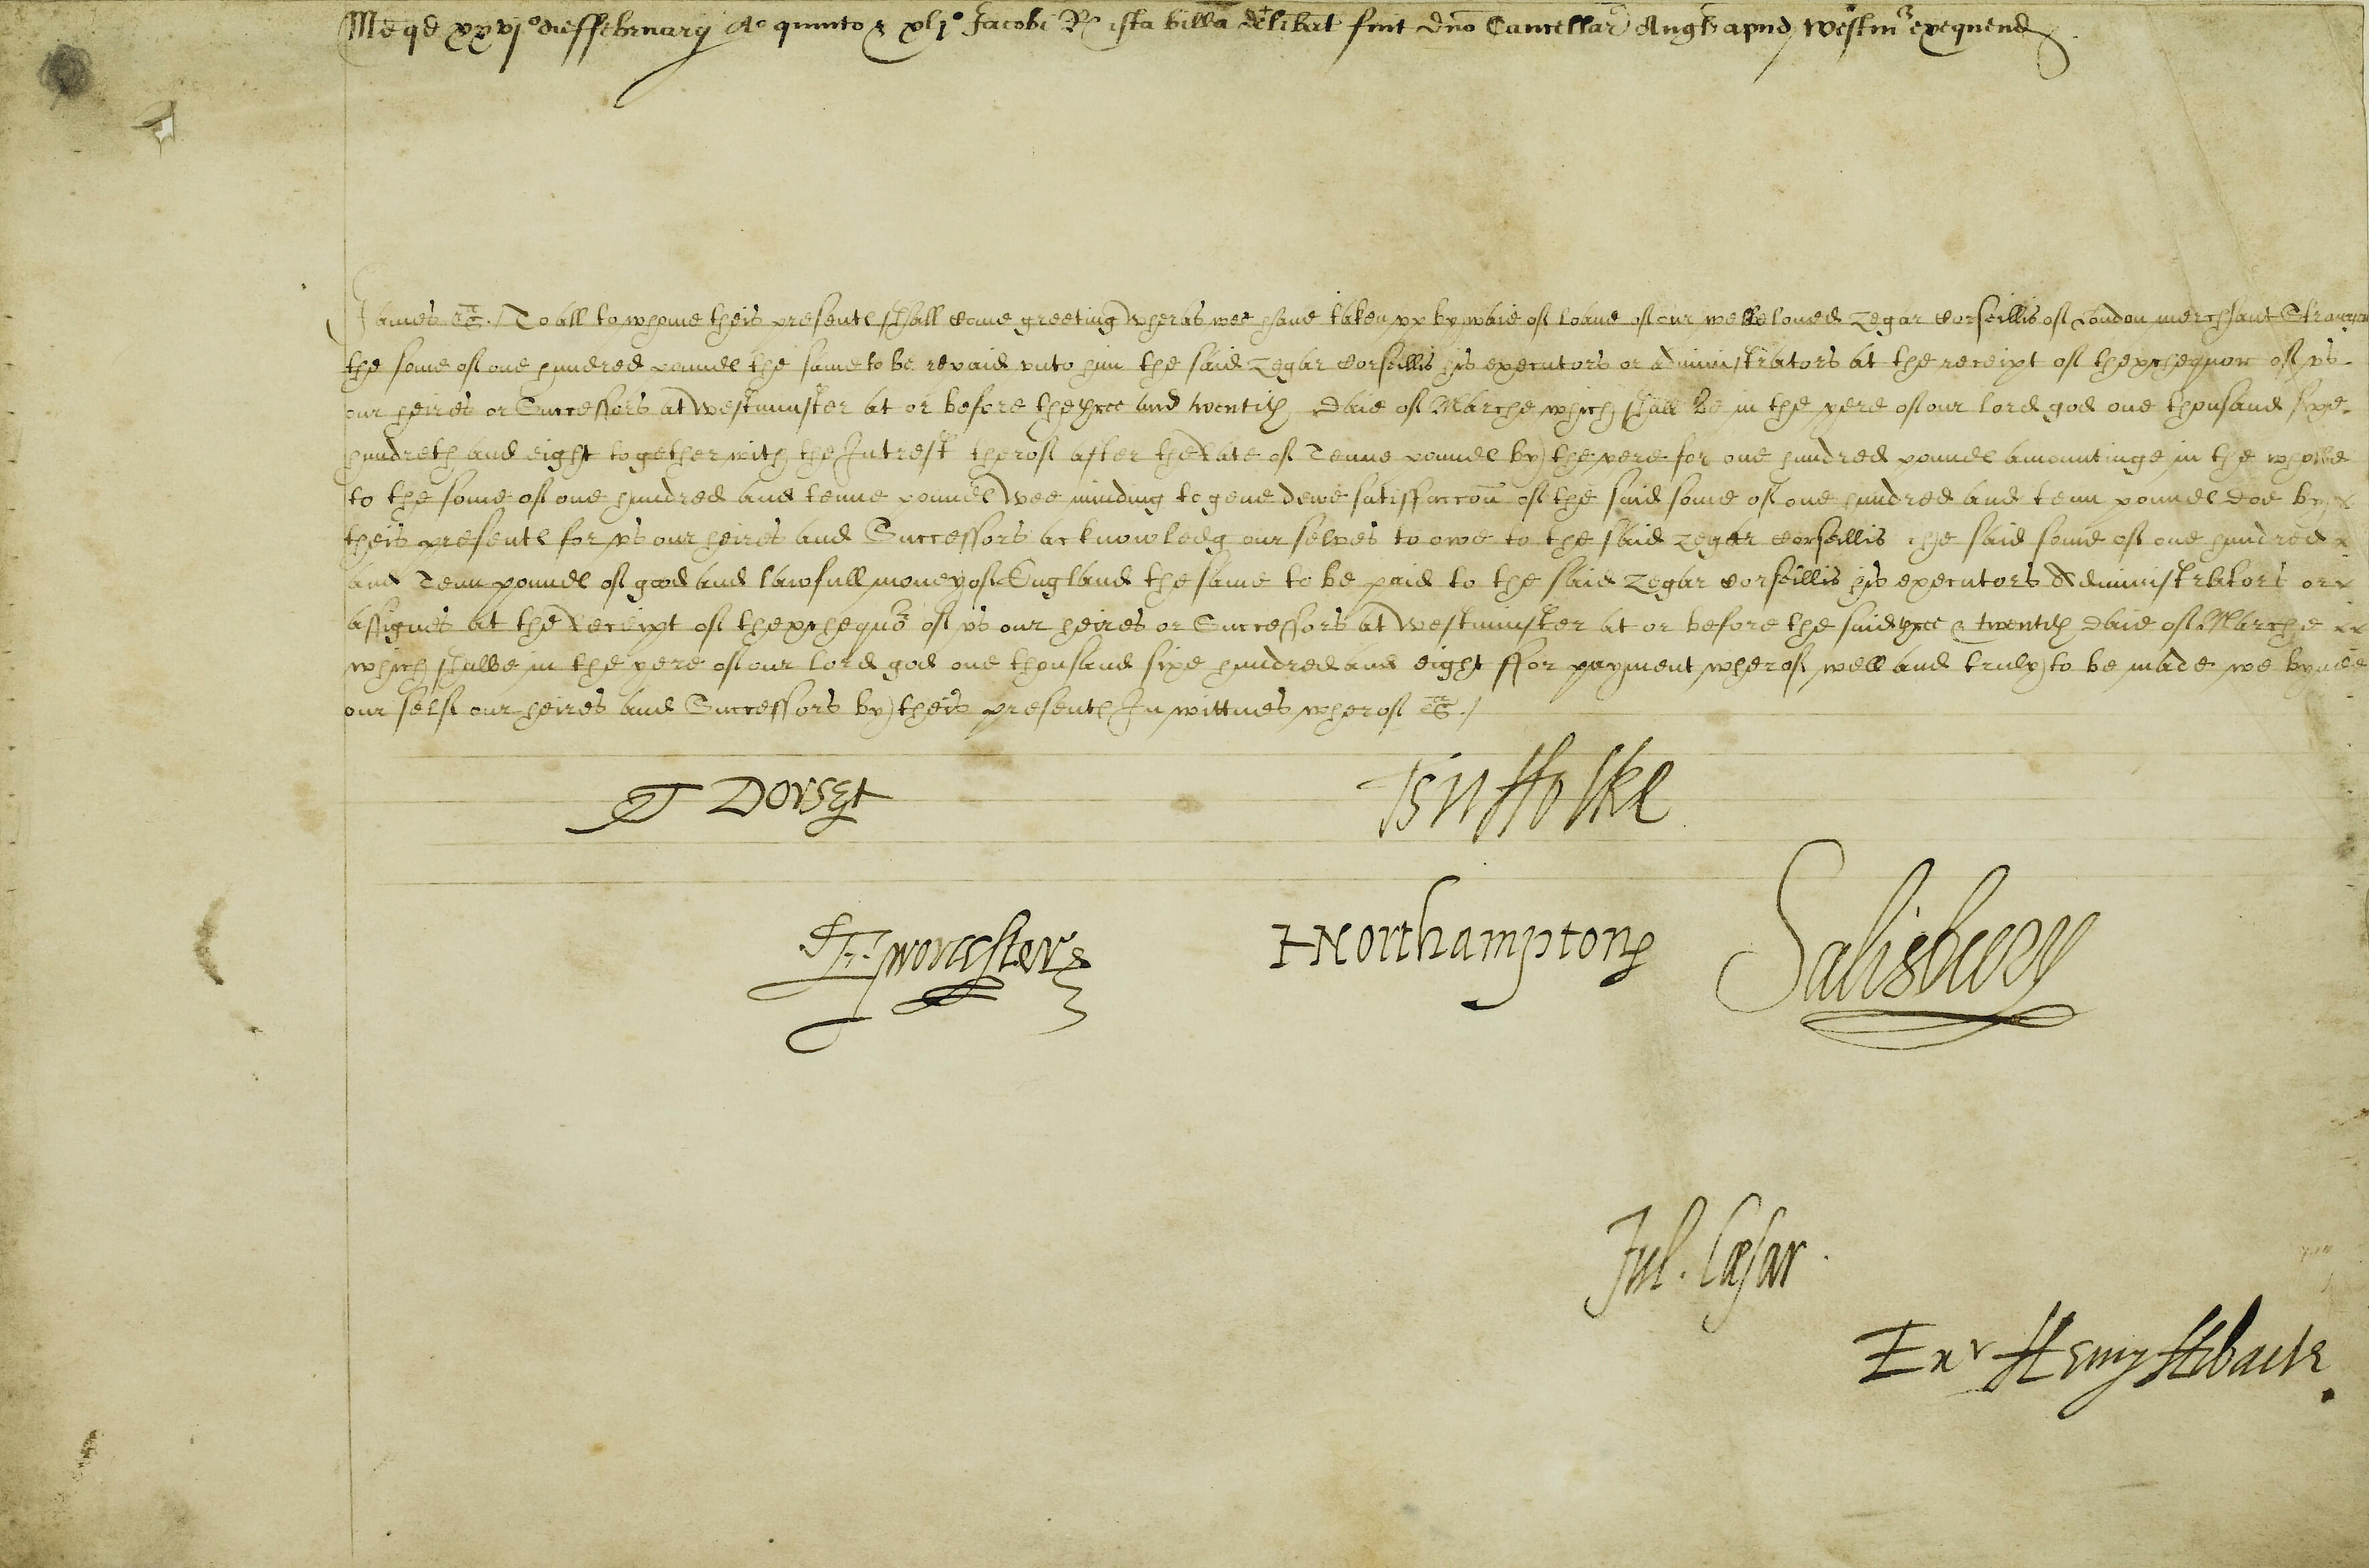 Md qd xxvjo die ffebruarij Ao quinto & xljo Jacobi Rs ista billa delibat fuit dno Cancellar Angl apud Westmr exequend
James &c./ To all to whome theis presentes shall come greeting Wheras wee have taken vp by waie of loane of our welbeloved Zegar Corseillis of London merchant Stranger
the some of one hundred poundes the same to be repaid vnto him the said Zegar Corseillis his executors or administrators at the receipt of thexchequor of vs
our heires or Successors at Westminster at or before the three and twentith daie of Marche which shall be in the yere of our lord god one thousand sixe
hundreth and eight together with the Intrest therof after the rate of Tenne poundes by the yere for one hundred poundes amountinge in the whole
to the some of one hundred and tenne poundes Wee minding to geue dewe satisffaccon of the said some of one hundred and tenn poundes doe by
theis presentes for vs our heires and Successors acknowledg our selves to owe to the said Zegar Corseillis the said some of one hundred
and Tenn poundes of good and lawfull money of England the same to be paid to the said Zegar Corseillis his executors Administrators or
assignes at the Receipt of thexchequor of vs our heires or Successors at Westminster at or before the said three & twentith daie of Marche
which shalbe in the yere of our lord god one thousand sixe hundred and eight ffor payment wherof well and truly to be made we bynde
our self our heires and Successors by theis presentes In wittnes wherof &c./
T Dorset
TSuffolke
E. worcester
HNorthampton
Salisbury
Jul. Cæsar.
Exr Henry Hobarte